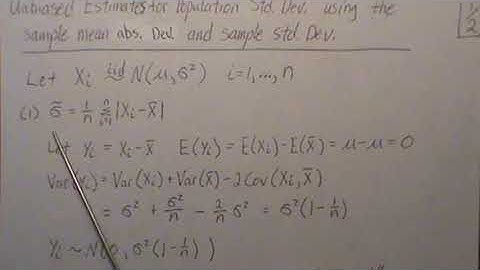 Unbiased Estimates for Population Std. Dev. using the
sample mean abs. Dev. and sample std. Dev.
1/2
Let Xi iid~ N(μ,σ²) i=1,...,n
(1) σ̃ = 1/n Σ(i=1 to n) |Xi-X̄|
Let Yi = Xi-X̄ E(Yi) = E(Xi)-E(X̄) = μ-μ = 0
Var(Yi) = Var(Xi)+Var(X̄)-2Cov(Xi,X̄)
= σ² + σ²/n - 2/n σ² = σ²(1-1/n)
Yi ~ N(0, σ²(1-1/n))